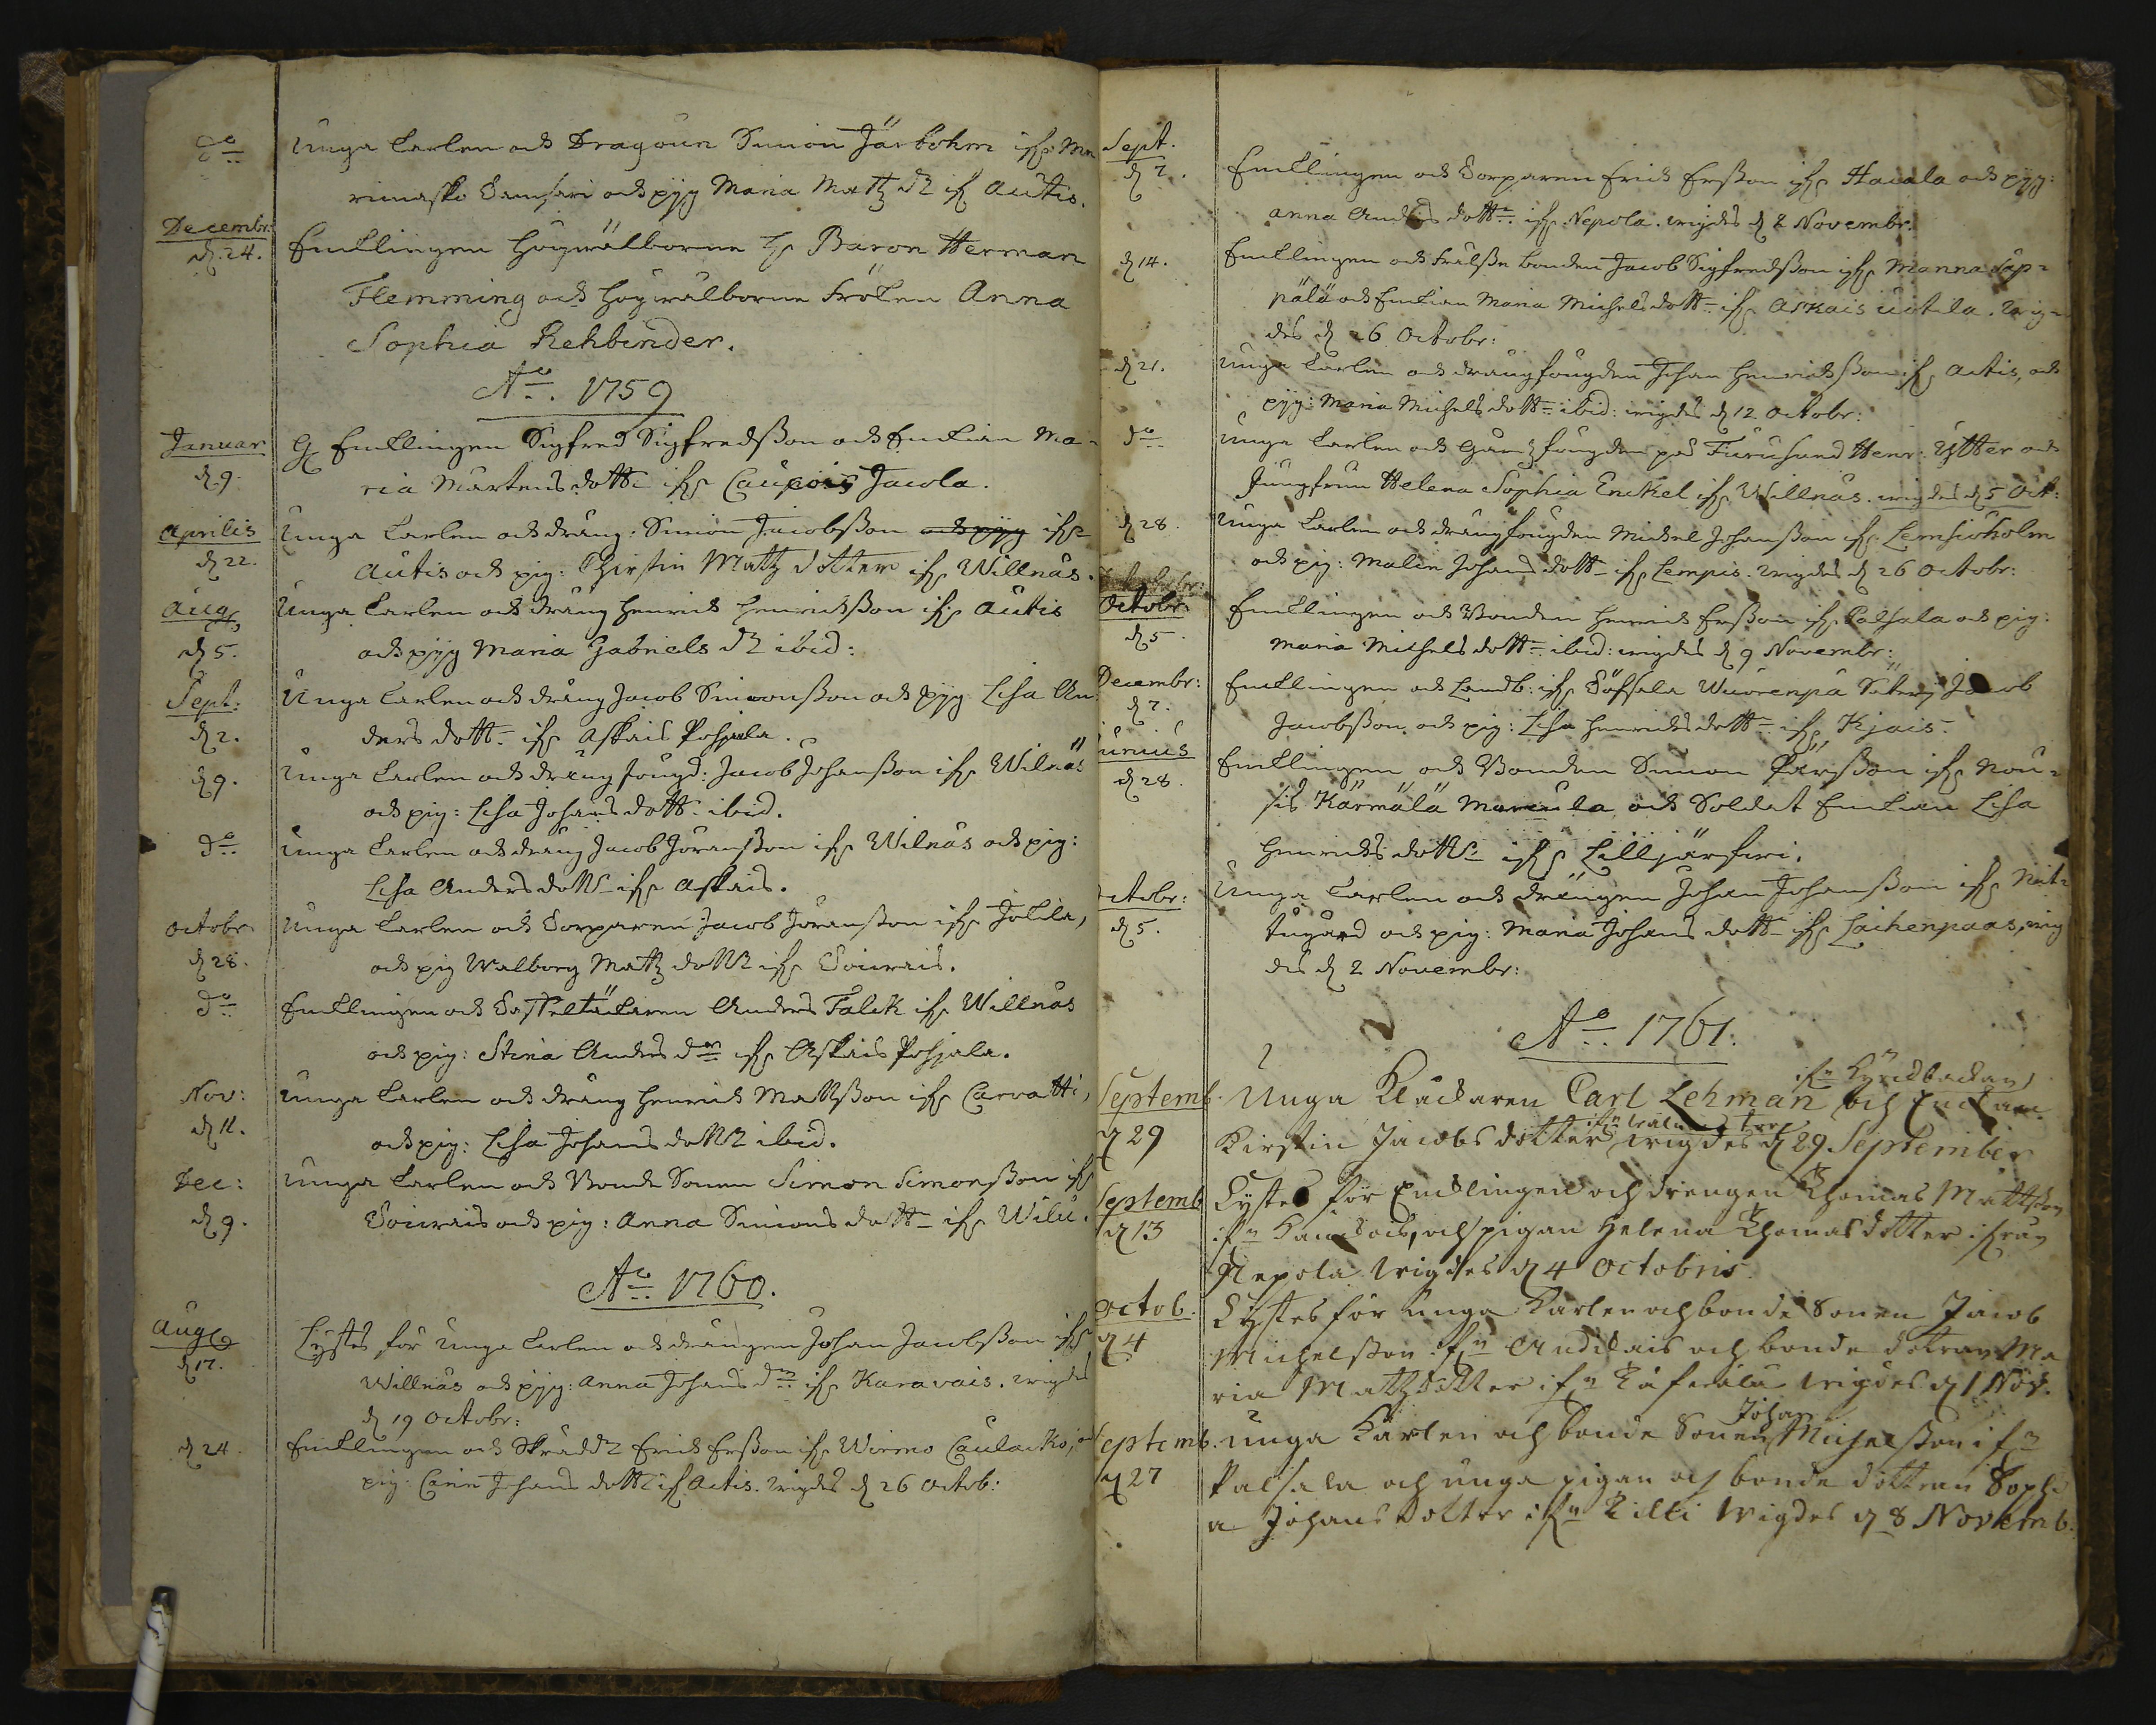 Do Unga Carlen och Dragoun Simon Järbohm ifr. Me
rimasko Samsari och pijg Maria Matz dr ifr Autis.
Decembr:
d. 24. Enklingen högwälborne h. Baron Herman
Flemming och högwälborne Fröken Anna
Sophia Rehbinder.
Ao. 1759
Januar
d. 9. Enklingen Sigfred Sigfredsson och Enkian Ma-
ria Mårtens dotter ifr Caupois Jacola.
Aprilis
d 22. Unga Carlen och dräng: Simon Jacobsson och pijg ifr
Autis och pig: Chirstin Matz dotter ifr Willnäs.
Aug
d 5. Unga Carlen och dräng Henrich Henrichsson ifr Autis
och pijg Maria Gabriels dr ibid:
Sept:
d 2. Unga Carlen och dräng Jacob Simonsson och pijg Lisa An-
ders dott. ifr Askais Pohjala.
d 9. Unga Carlen och drängfougd: Jacob Johansson ifr Wilnäs
och pig: Lisa Johans dott. ibid.
Do Unga Carlen och dräng Jacob Jöransson ifr Wilnäs och pig:
Lisa Anders dott ifr Askais.
Octobr
d 28. Unga Carlen och Torparen Jacob Jöransson ifr Jokila,
och pig Walborg Matz dotter ifr Soinais.
Do Enklingen och Anders Falck ifr Willnäs
och pig: Stina Anders dr ifr Askais Pohjala.
Nov:
d 11. Unga Carlen och dräng Henrich Mattsson ifr Carvatti,
och pig: Lisa Johans dotter ibid.
Dec:
d 9. Unga Carlen och Bonde Sonen Simon Simonsson ifr
Soinais och pig: Anna Simons dott ifr Wilu.
Ao. 1760.
Aug
d 17. Lystes för Unga Carlen och drängen Johan Jacobsson ifr
Willnäs och pijg: Anna Johans dr ifr Karavais. wigdes
d 19 Octobr:
d 24. Enklingen och Skrädd Erich Ersson ifr Wirmo Caulacko, och
pig. Carin Johans dott ifr Autis. wigdes d 26 Octob:
Sept.
d 7. Enklingen och Torparen Erich Ersson ifr Havala och pijg:
Anna Anders dott ifr Nepola. wigdes d 2 Novembr.
d 14. Enklingen och Frälse bonden Jacob Sigfredsson ifr Manna Säp-
pälä och Enkian Maria Michels dott ifr Askais Uotila. wig-
des d 26 Octobr:
d 21. Unga Carlen och drängfougden Johan Henrichsson ifr Autis, och
pijg: Maria Michels dott ibid: wigdes d 12 Octobr:
do Unga Carlen och fougden på Furusund Henr: Ytter och
Jungfrun Helena Sophia Enckel ifr Willnäs. wigdes d 5 Oct:
d 28. Unga Carlen och drängfougden Michel Johansson ifr Lemsioholm
och pig: Malin Johans dott ifr Lempis. wigdes d 26 Octobr:
Octobr
d 5. Enklingen och Bonden Henrich Ersson ifr Palsala och pig:
Maria Michels dott ibid: wigdes d 9 Novembr:
Decembr:
d 7. Enklingen och Landb: ifr Wuorenpä Säterij Jacob
Jacobsson och pig: Lisa Henrichs dott ifr Kjais.
Junius
d 28. Enklingen och Bonden Simon Pärsson ifr Nou-
sis Kärmälä Marcula och Soldat Enkian Lisa
Henrichs dotter ifr Lilljärfwi.
Octobr:
d 5. Unga Carlen och drängen Johan Johansson ifr Niit-
tugård och pig: Maria Johans dott ifr Laihenpaas, wig
des d 2 Novembr:
Ao. 1761.
Septemb.
d 29 Unga Klåckaren Carl Lehman ifrn och Enckan
Kirstin Jacobs dotter ifrn wigdes d 29 September
Septemb
d 13 Lystes för Encklingen och drengen Thomas Mattsson
ifrn, och pigan Helena Thomas dotter ifrån
Nepola wigdes d 4 Octobris.
Octob.
d 4 Lystes för unga Karlen och bonde Sonen Jacob
Michelsson ifrn Auddais och bonde dotran Ma
ria Matzdotter ifrn wigdes d 1 Nov.
Septemb.
d 27 unga Karlen och bonde Sonen Johan Michelsson ifrn
Palsala och unga pigan och bonde dottran Sophi
a Johans dotter ifrn Killi wigdes d 8 Novemb.